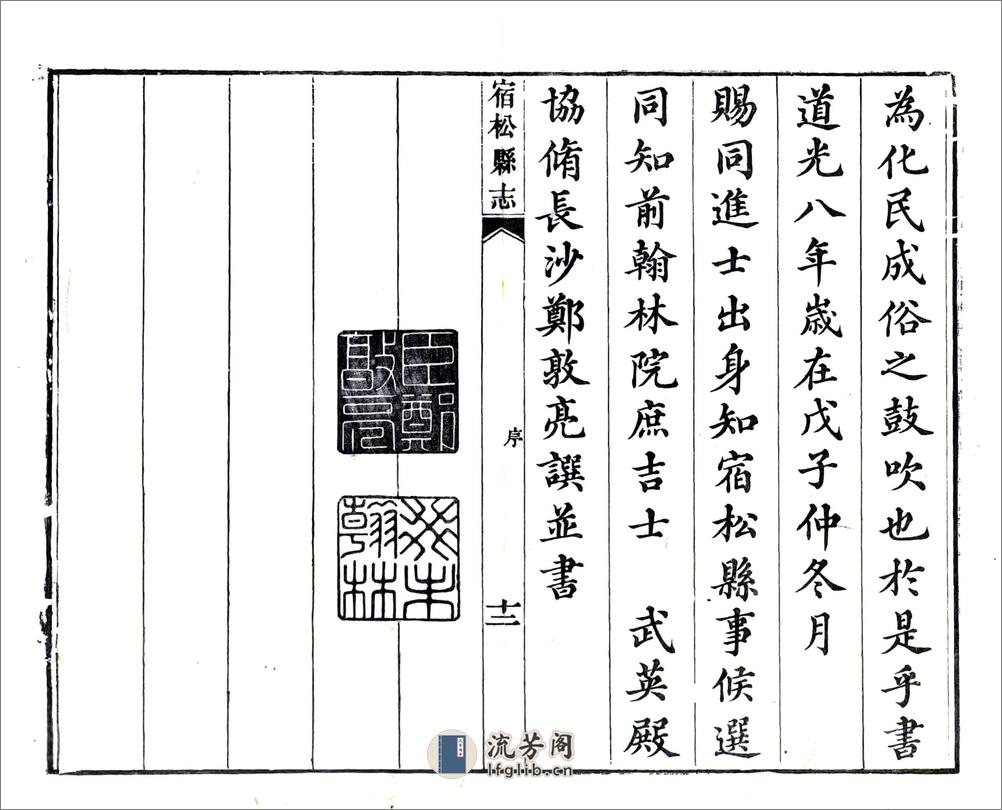 為化民成俗之鼓吹也於是乎書
道光八年歲在戊子仲冬月
賜同進士出身知宿松縣事候選
同知前翰林院庶吉士　武英殿
協脩長沙鄭敦亮譔並書
宿松縣志
序
十三
臣鄭敦亮
癸未翰林
流芳阁
lfglib.cn